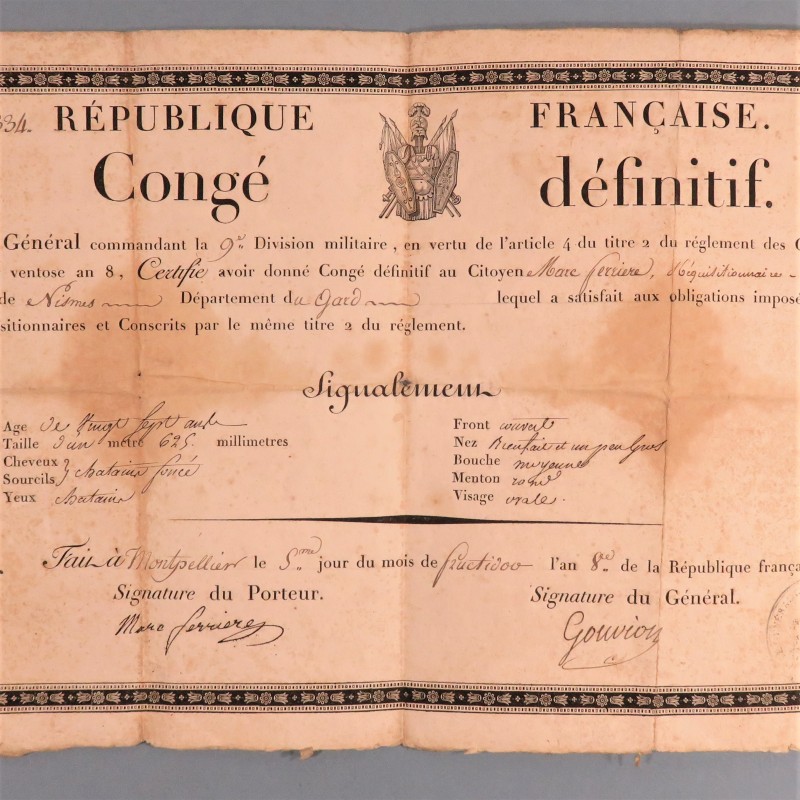 334. RÉPUBLIQUE FRANÇAISE.
Congé définitif.
Général commandant la 9.e Division militaire, en vertu de l'article 4 du titre 2 du réglement des
ventose an 8, Certifie avoir donné Congé définitif au Citoyen Marc ferriere, Réquisitionnaire
de Nismes Département du Gard lequel a satisfait aux obligations imposé
sitionnaires et Conscrits par le même titre 2 du réglement.
Signalement
Age de Vingt Sept ans
Taille d'un metre 625. millimetres
Cheveux
Sourcils } chatains foncé
Yeux chatains
Front couvert
Nez Bienfait et un peu Gros
Bouche moyenne
Menton rond
Visage ovale.
Fait à Montpellier le 5.me jour du mois de fructidor l'an 8.e de la République frança
Signature du Porteur. Signature du Général.
Marc ferriere Gouvion